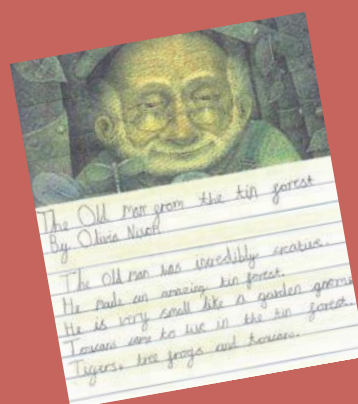 The Old Man from the tin forest
By Olivia Nixon
The Old man was incredibly creative.
He made an amazing tin forest.
He is very small like a garden gnome
Toucans came to live in the tin forest.
Tigers, tree frogs and toucans.